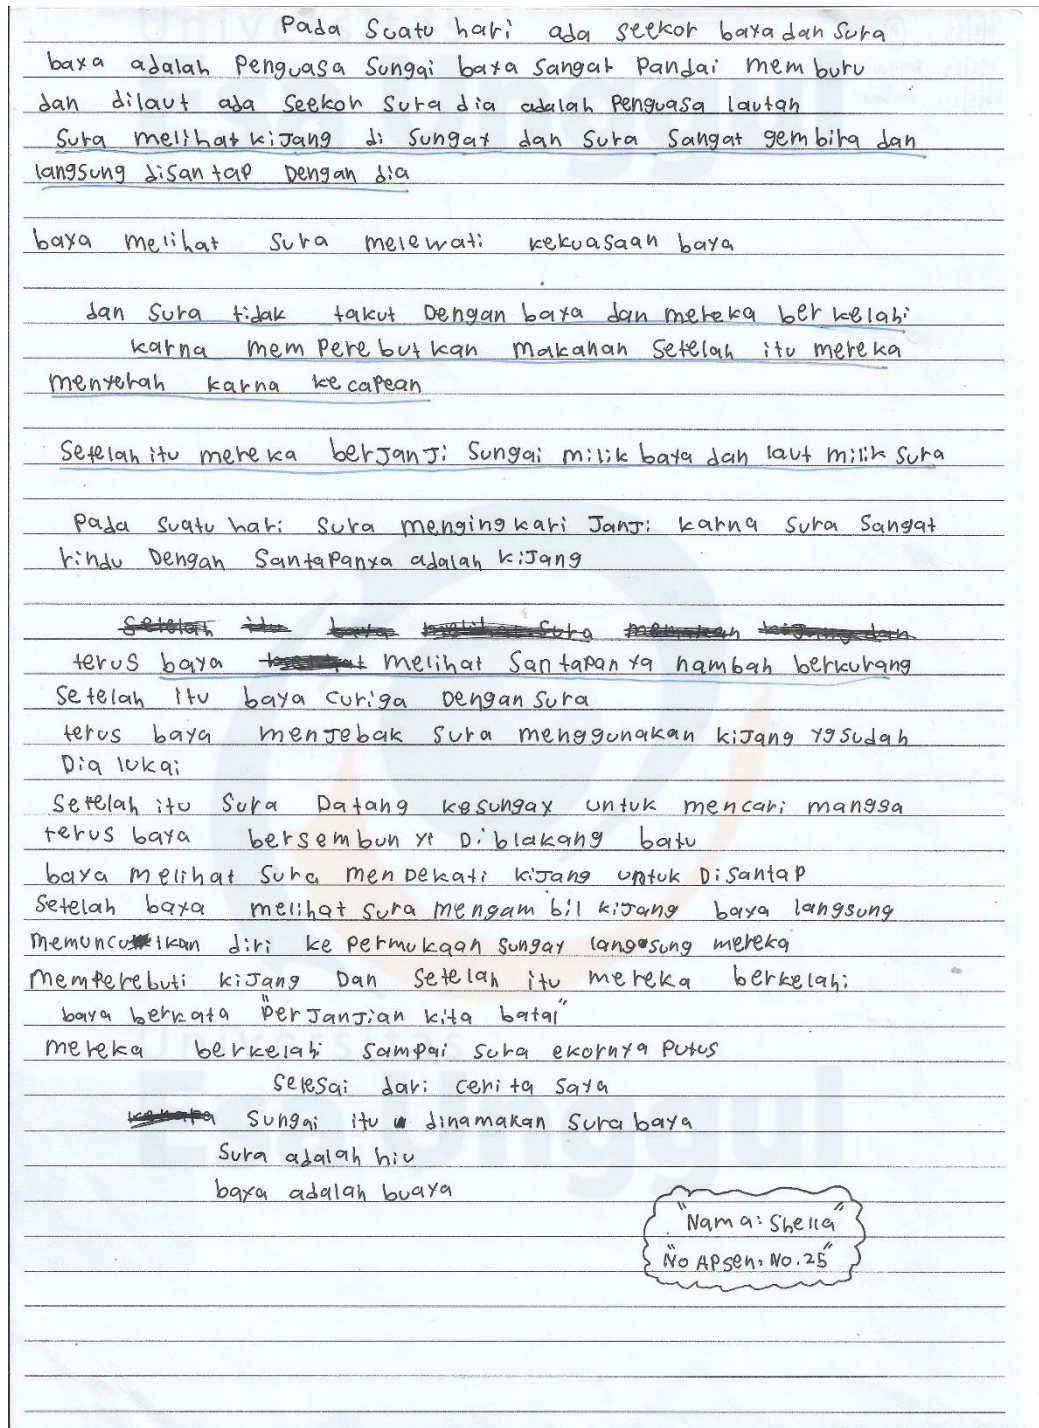 Pada Suatu hari ada seekor baya dan Sura
baya adalah Penguasa Sungai baya Sangat Pandai memburu
dan dilaut ada seekor Sura dia adalah Penguasa lautan
Sura melihat kiJang di Sungay dan Sura Sangat gembira dan
langsung diSantap Dengan dia
baya melihat Sura melewati kekuasaan baya
dan Sura tidak takut Dengan baya dan mereka ber kelahi
karna mem Perebutkan makanan Setelah itu mereka
menyerah karna ke caPean
Setelah itu mereka berJanJi Sungai milik baya dan laut milik Sura
Pada Suatu hari Sura mengingkari JanJi karna Sura Sangat
rindu Dengan SantaPanya adalah kiJang
Setelah itu baya melihat Sura memakan kiJang dan
terus baya melihat SantaPan ya nambah berkurang
Setelah itu baya curiga Dengan Sura
terus baya menJebak Sura menggunakan kiJang yg Sudah
Dia lukai
Setelah itu Sura Datang kesungay untuk mencari mangsa
terus baya bersembun yi Diblakang batu
baya melihat Sura menDekati kiJang untuk DiSantaP
Setelah baya melihat Sura mengam bil kiJang baya langsung
memuncu lkan diri ke Permukaan Sungay langsung mereka
memPerebuti kiJang Dan Setelah itu mereka berkelahi
baya berkata "PerJanJian kita batal"
mereka berkelahi SamPai Sura ekornya Putus
Selesai dari cerita Saya
kenapa Sungai itu dinamakan Sura baya
Sura adalah hiu
baya adalah buaya
"Nama: Shella"
"No APsen: No.25"
Universitas
Esa Unggul